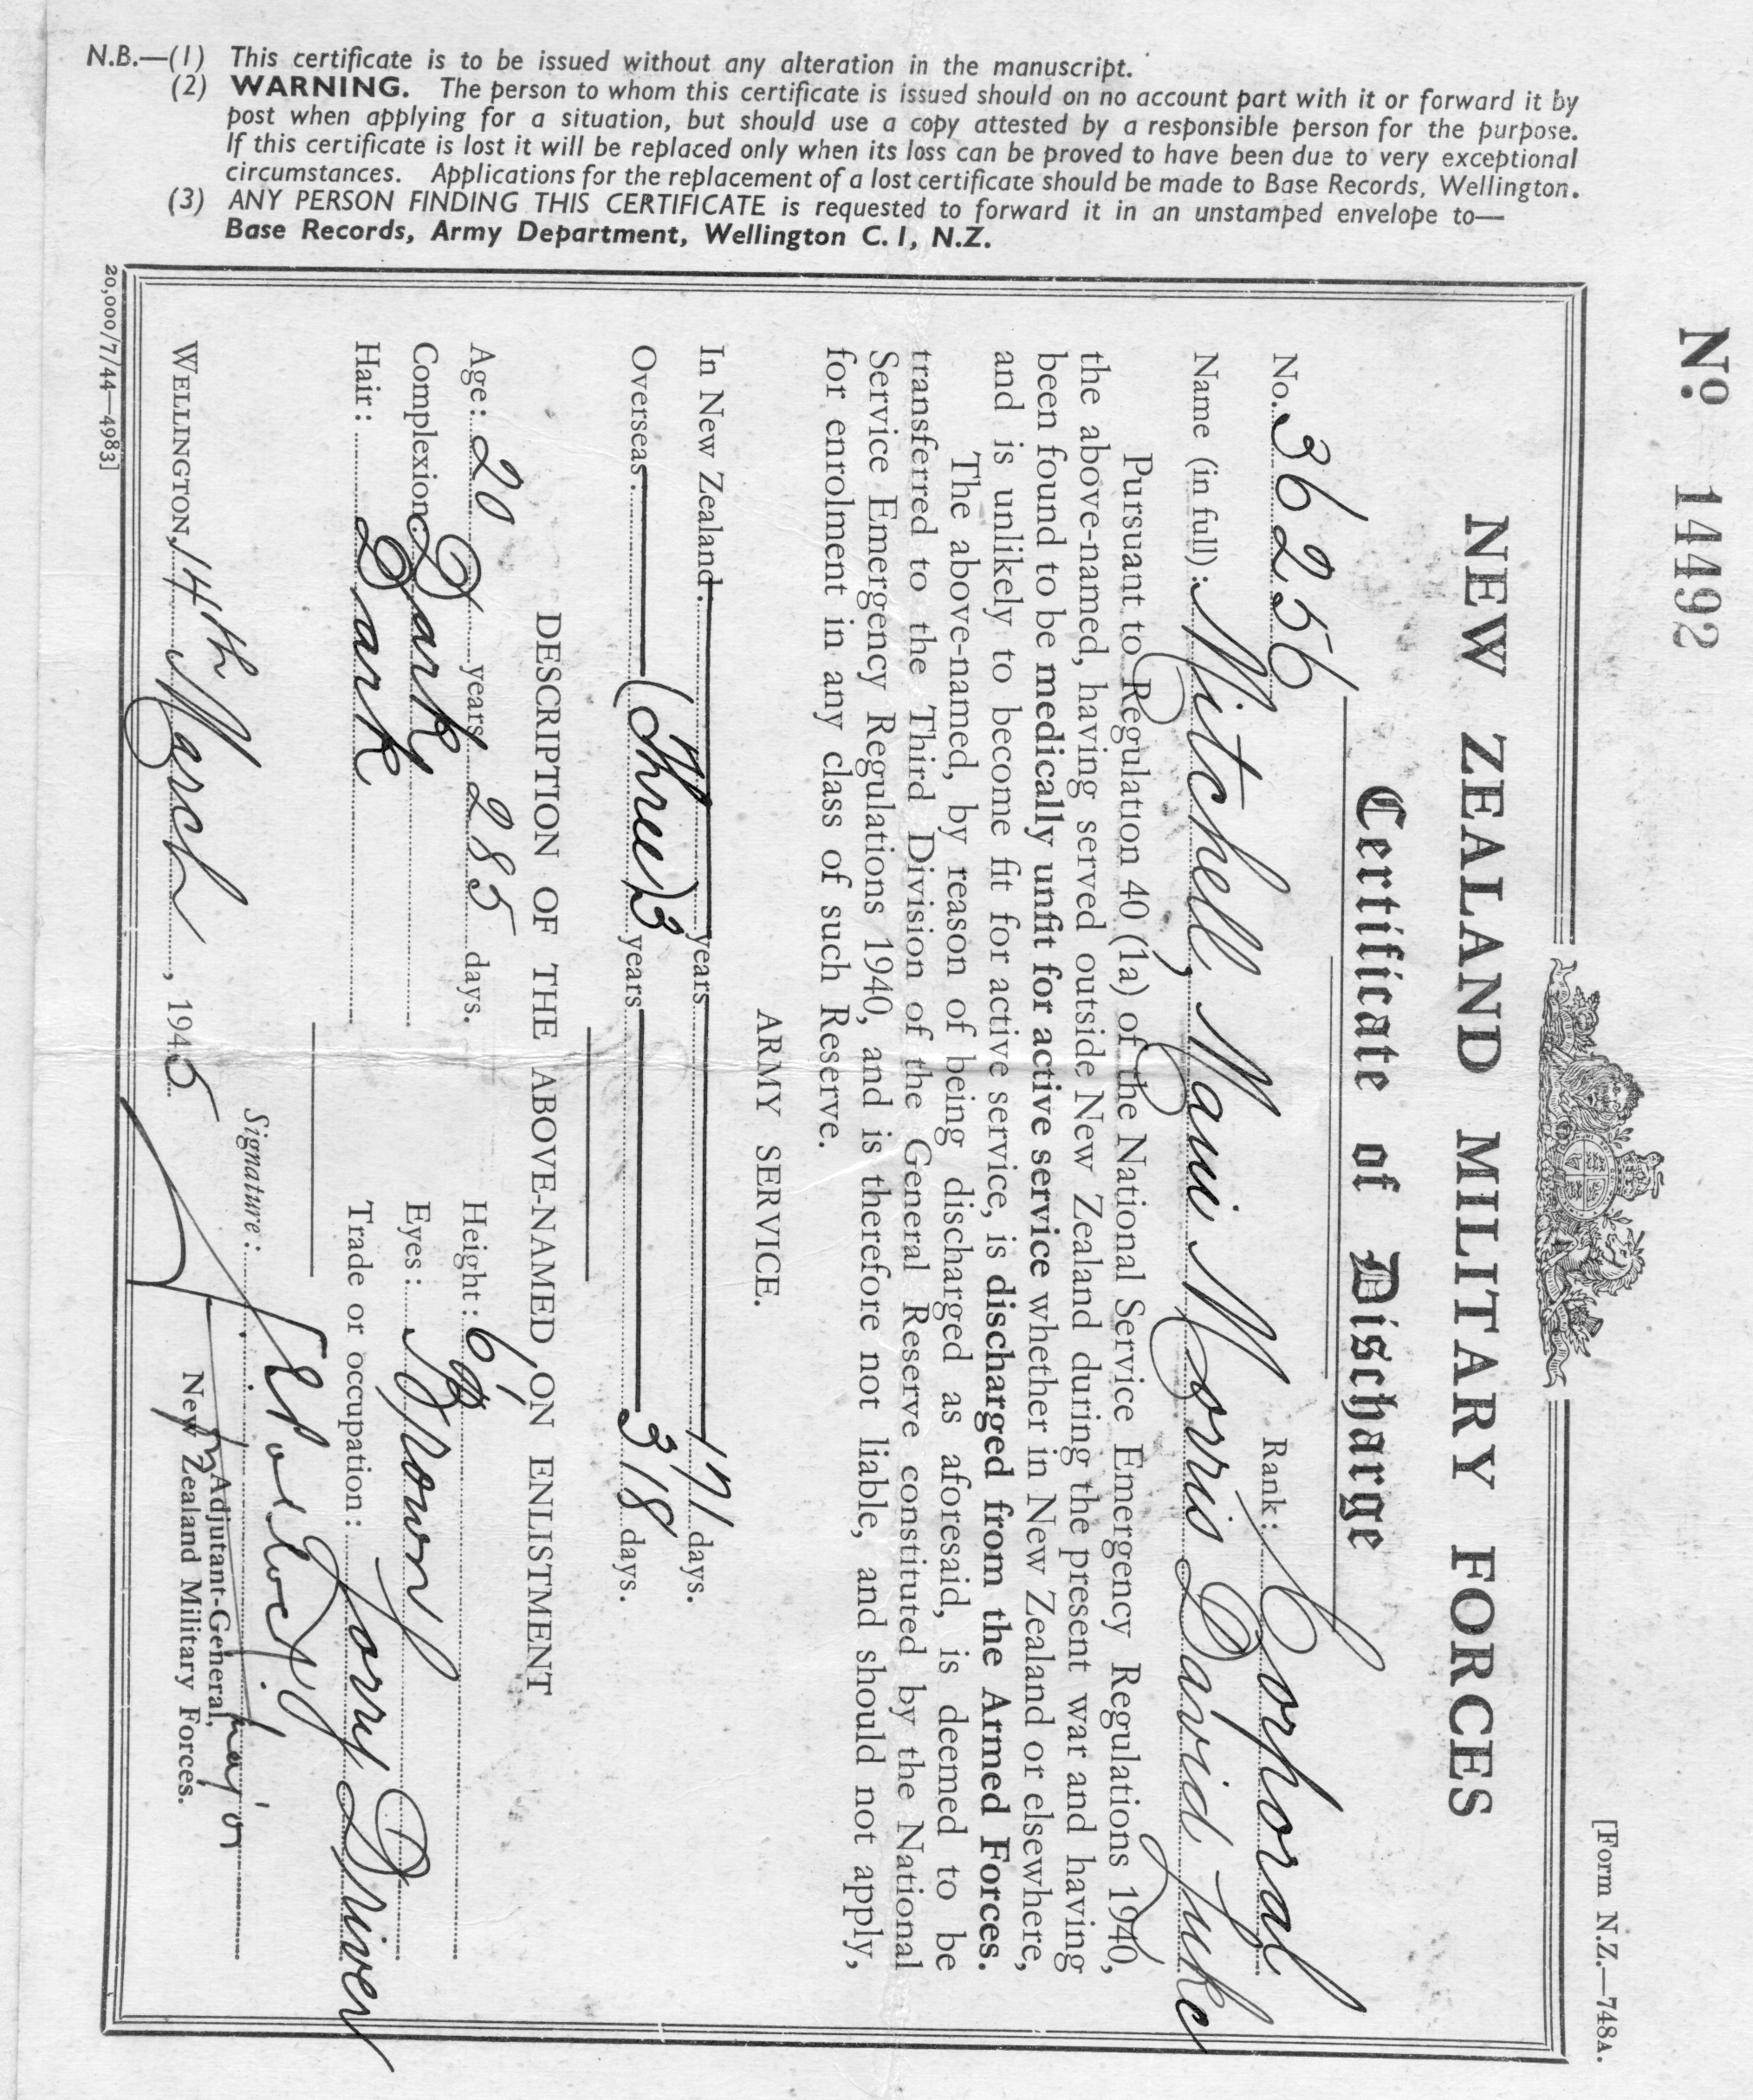 No. 14492
[Form N.Z.—748A.
NEW ZEALAND MILITARY FORCES
Certificate of Discharge
No. 36256 Rank: Corporal
Name (in full): Mitchell, Maui Morris David Juke
Pursuant to Regulation 40 (1a) of the National Service Emergency Regulations 1940,
the above-named, having served outside New Zealand during the present war and having
been found to be medically unfit for active service whether in New Zealand or elsewhere,
and is unlikely to become fit for active service, is discharged from the Armed Forces.
The above-named, by reason of being discharged as aforesaid, is deemed to be
transferred to the Third Division of the General Reserve constituted by the National
Service Emergency Regulations 1940, and is therefore not liable, and should not apply,
for enrolment in any class of such Reserve.
ARMY SERVICE.
In New Zealand: years 171 days.
Overseas: (Three) 3 years 318 days.
DESCRIPTION OF THE ABOVE-NAMED ON ENLISTMENT
Age: 20 years 285 days. Height: 6'
Complexion: Dark Eyes: Brown
Hair: Dark Trade or occupation: Lorry Driver
Signature:
Major
WELLINGTON, 14th March, 1945
Adjutant-General,
New Zealand Military Forces.
20,000/7/44—4983]
N.B.—(1) This certificate is to be issued without any alteration in the manuscript.
(2) WARNING. The person to whom this certificate is issued should on no account part with it or forward it by
post when applying for a situation, but should use a copy attested by a responsible person for the purpose.
If this certificate is lost it will be replaced only when its loss can be proved to have been due to very exceptional
circumstances. Applications for the replacement of a lost certificate should be made to Base Records, Wellington.
(3) ANY PERSON FINDING THIS CERTIFICATE is requested to forward it in an unstamped envelope to—
Base Records, Army Department, Wellington C. 1, N.Z.